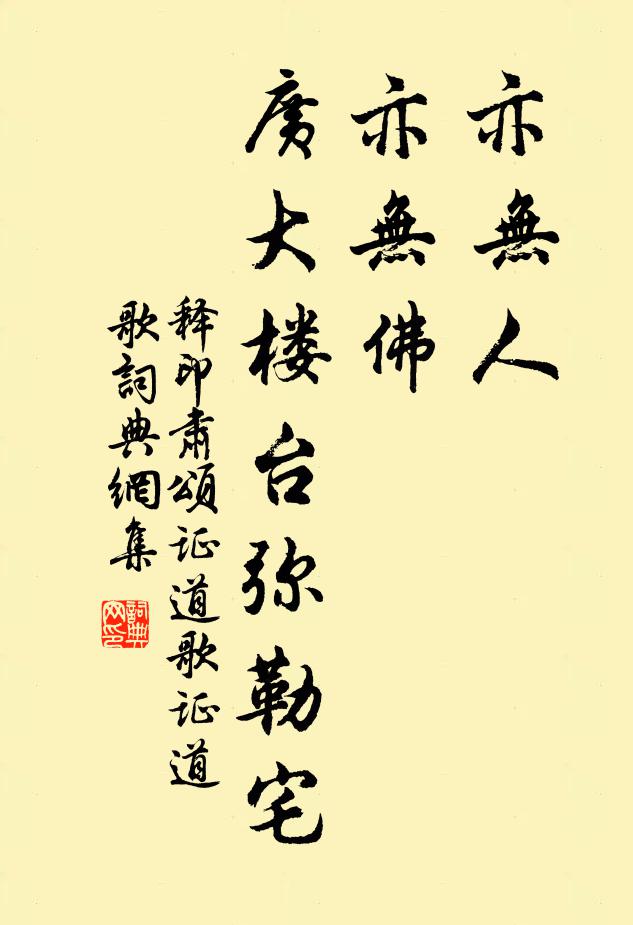 亦無人
亦無佛
廣大楼台弥勒宅
释印肃頌证道歌证道
歌詞典網集
詞典网印